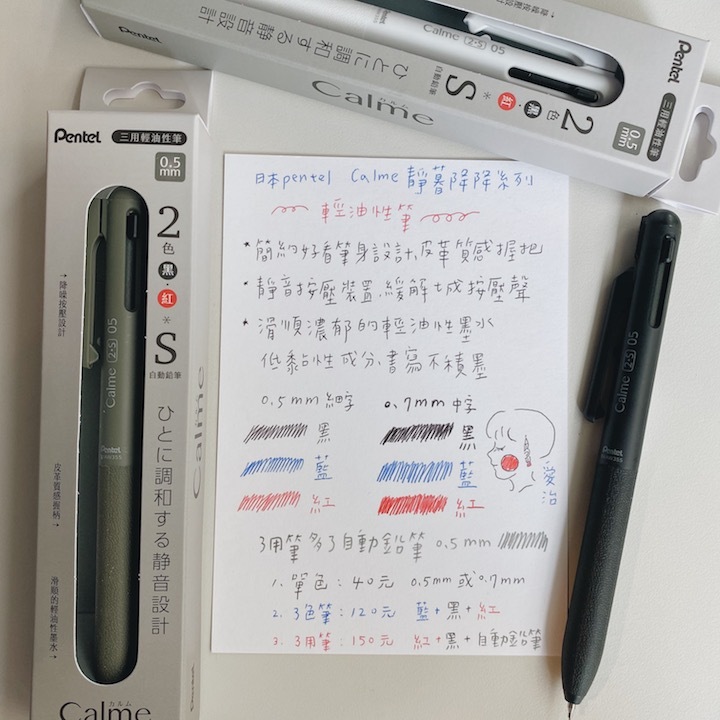 Pentel
三用輕油性筆
0.5
mm
2
色
黑
・
紅
*
S
自動鉛筆
ひとに調和する静音設計
カルム
Calme
→降噪按壓設計
皮革質感握柄→
滑順的輕油性墨水→
Calme 2+S 05
Pentel
カルム
Calme
Pentel
三用輕油性筆
0.5
mm
2
色
黑
・
紅
*
S
自動鉛筆
ひとに調和する静音設計
カルム
Calme
→降噪按壓設計
Calme 2+S 05
日本pentel Calme 靜暮降降系列
輕油性筆
* 簡約好看筆身設計、皮革質感握把
* 靜音按壓裝置、緩解七成按壓聲
* 滑順濃郁的輕油性墨水
低黏性成分、書寫不積墨
0.5mm 細字 0.7mm 中字
黑 黑
藍 藍
紅 紅
愛治
3用筆多了自動鉛筆 0.5mm
1. 單色：40元 0.5mm或0.7mm
2. 3色筆：120元 藍+黑+紅
3. 3用筆：150元 紅+黑+自動鉛筆
Calme 2+S 05
Pentel